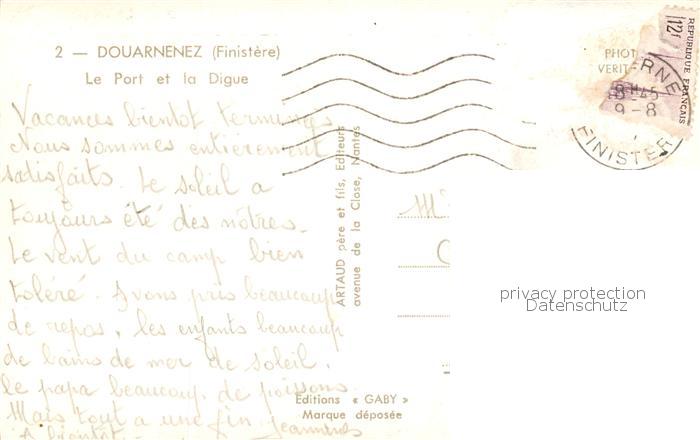 2 — DOUARNENEZ (Finistère)
Le Port et la Digue
Vacances bientôt terminées
Nous sommes entièrement
satisfaits. Le soleil a
toujours été des nôtres.
Le vent du camp bien
toléré. Avons pris beaucoup
de repos, les enfants beaucoup
de bains de mer de soleil,
le papa beaucoup de poissons.
Mais tout a une fin. Jeannine
A bientôt.
ARTAUD père et fils, Editeurs
avenue de la Close, Nantes
Editions « GABY »
Marque déposée
PHOT
VERIT
REPUBLIQUE FRANCAIS
12f
ERNE
8H45
9-8
FINISTER
M
privacy protection
Datenschutz